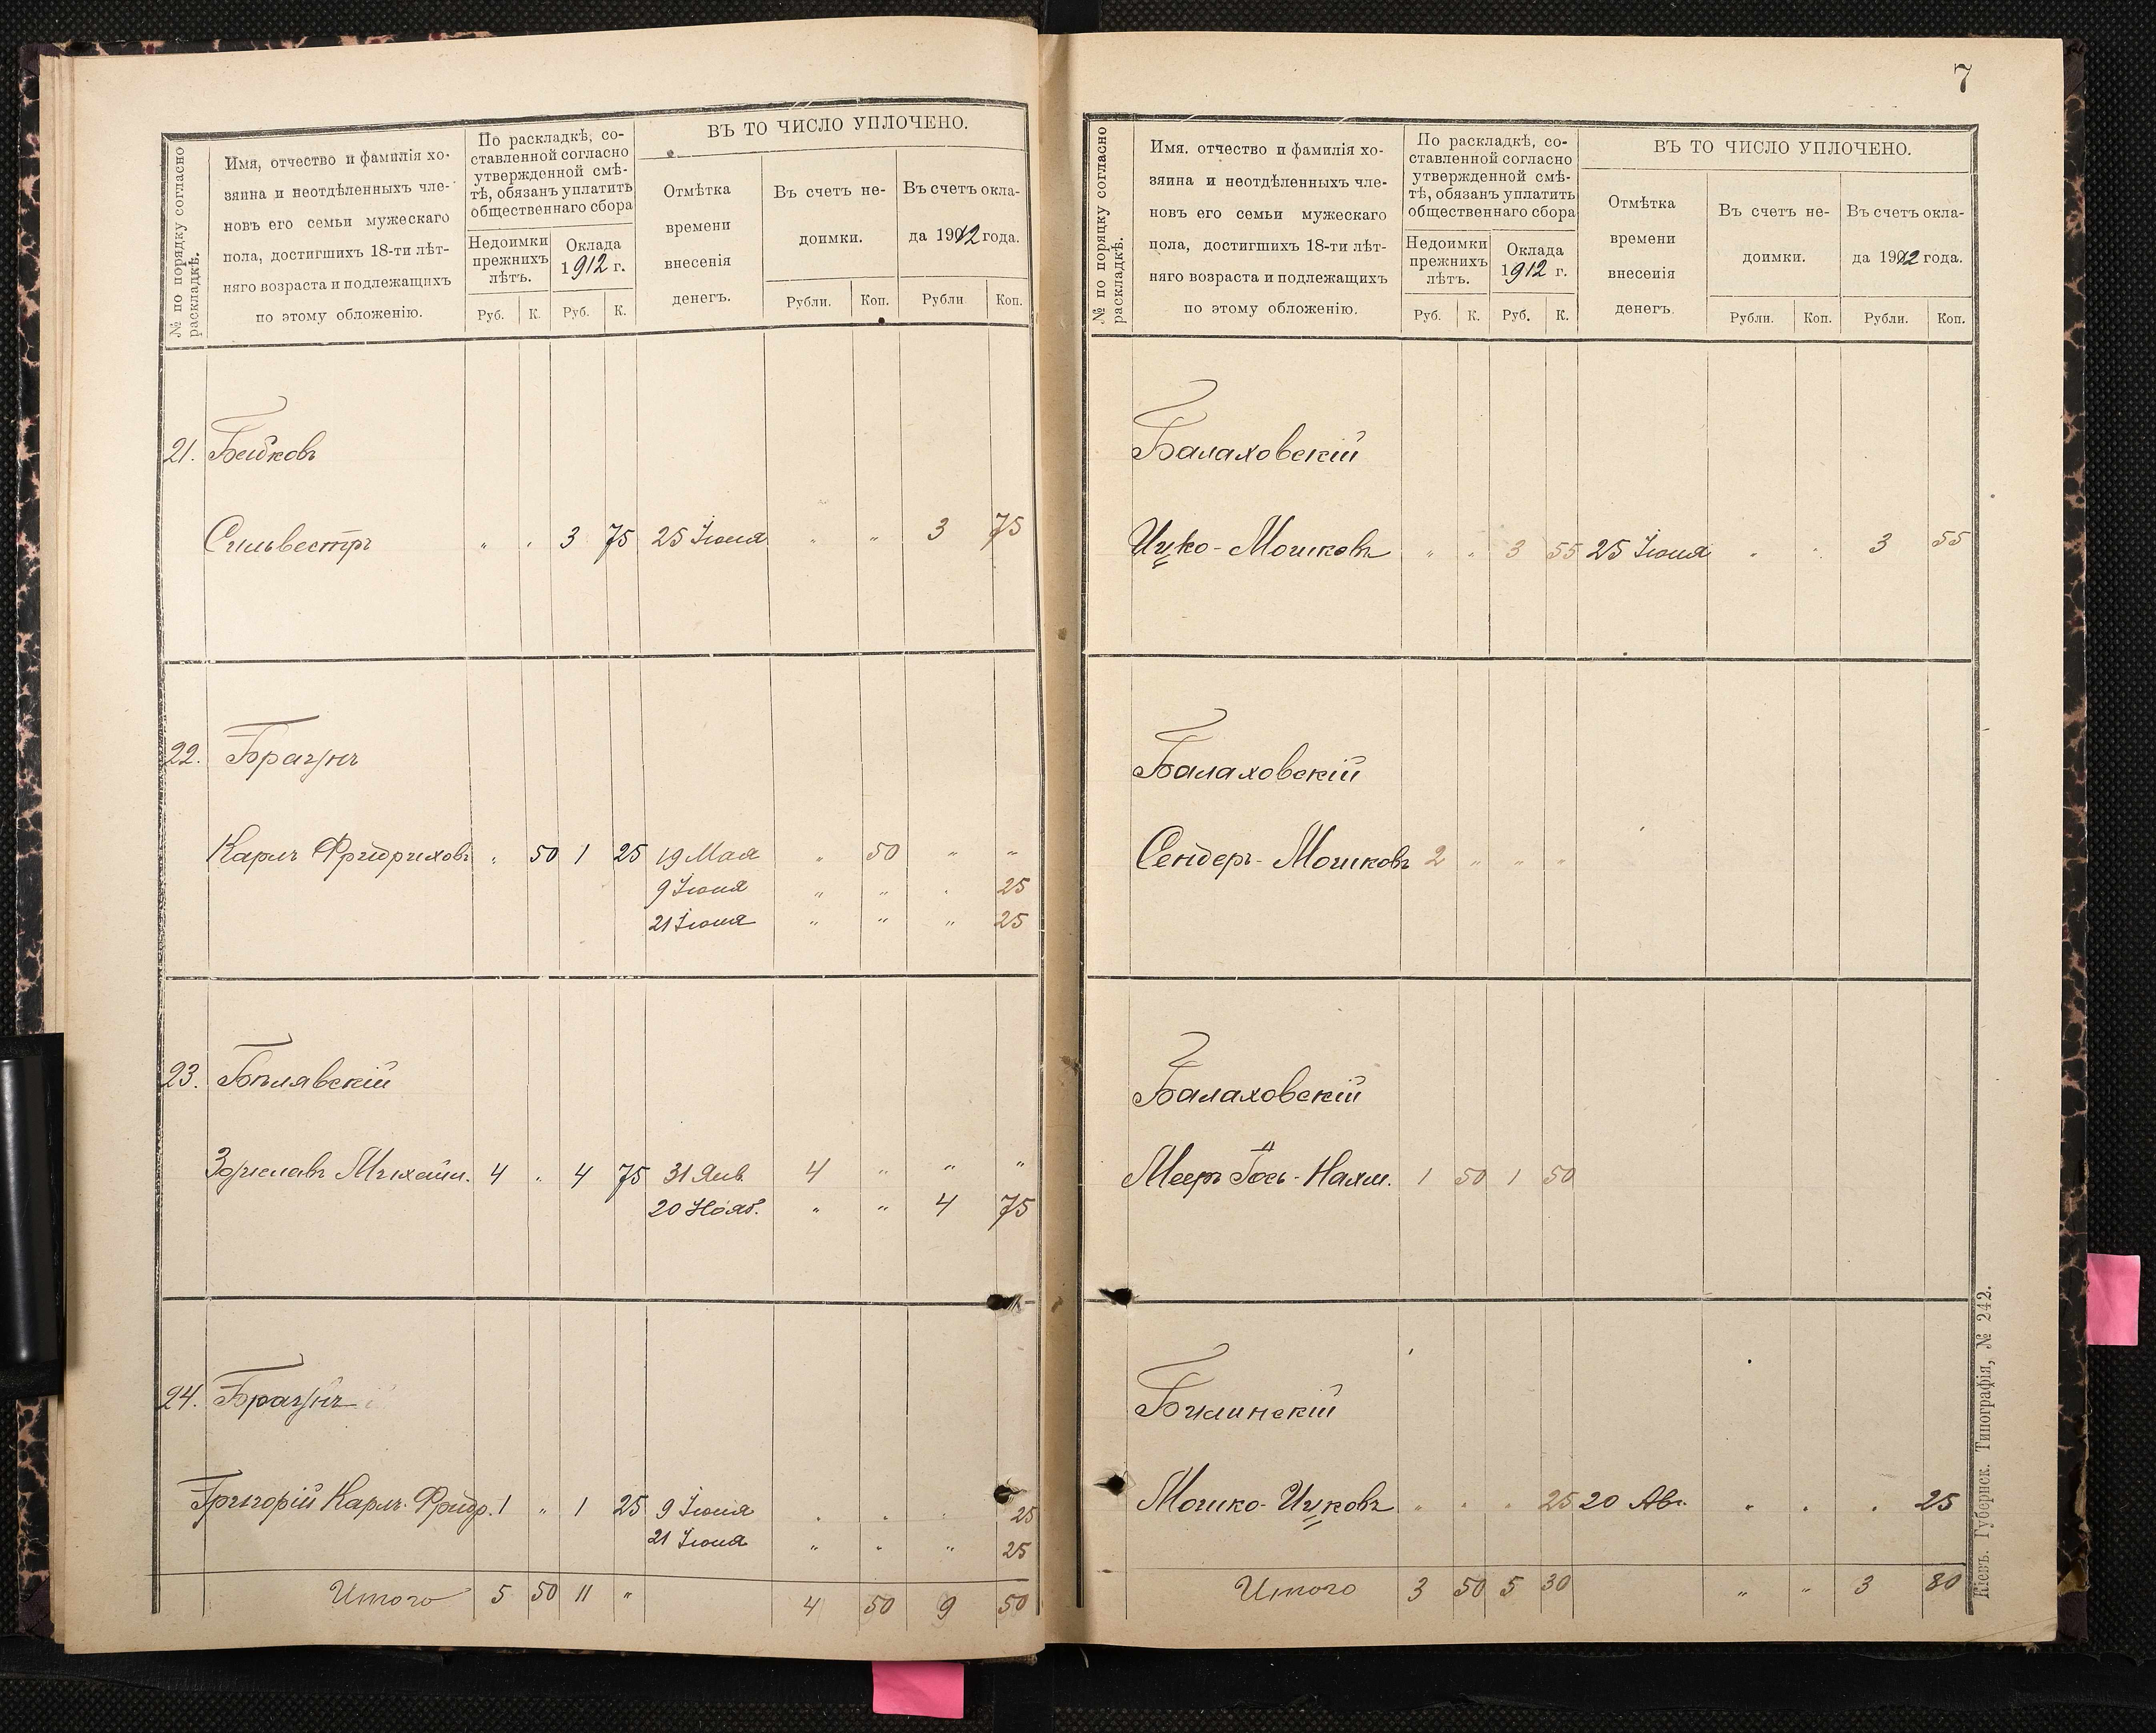 № по порядку согласно
раскладкѣ.
Имя, отчество и фамилія хо-
зяина и неотдѣленныхъ чле-
новъ его семьи мужескаго
пола, достигшихъ 18-ти лѣт-
няго возраста и подлежащихъ
по этому обложенію.
По раскладкѣ, со-
ставленной согласно
утвержденной смѣ-
тѣ, обязанъ уплатить
общественнаго сбора
Недоимки
прежнихъ
лѣтъ.
Оклада
1912 г.
Руб. К. Руб. К.
ВЪ ТО ЧИСЛО УПЛОЧЕНО.
Отмѣтка
времени
внесенія
денегъ.
Въ счетъ не-
доимки.
Въ счетъ окла-
да 1912 года.
Рубли. Коп. Рубли Коп.
21. Бейковъ
Сильвестръ " " 3 75 25 Іюня " " 3 75
22. Браунъ
Карлъ Фридриховъ " 50 1 25 19 Мая " 50 " "
9 Іюня " " " 25
21 Іюня " " " 25
23. Бѣлявскій
Михаил. 4 " 4 75 31 Янв. 4 " " "
20 Нояб. " " 4 75
24. Браунъ
Григорій Карлъ Фридр. 1 " 1 25 9 Іюня " " " 25
21 Іюня " " " 25
Итого 5 50 11 " 4 50 9 50
7
№ по порядку согласно
раскладкѣ.
Имя. отчество и фамилія хо-
зяина и неотдѣленныхъ чле-
новъ его семьи мужескаго
пола, достигшихъ 18-ти лѣт-
няго возраста и подлежащихъ
по этому обложенію.
По раскладкѣ, со-
ставленной согласно
утвержденной смѣ-
тѣ, обязанъ уплатить
общественнаго сбора
Недоимки
прежнихъ
лѣтъ.
Оклада
1912 г.
Руб. К. Руб. К.
ВЪ ТО ЧИСЛО УПЛОЧЕНО.
Отмѣтка
времени
внесенія
денегъ.
Въ счетъ не-
доимки.
Въ счетъ окла-
да 1912 года.
Рубли. Коп. Рубли. Коп.
Балаховскій
Ицко-Мошковъ " " 3 55 25 Іюня " " 3 55
Балаховскій
Сендеръ-Мошковъ 2 " " "
Балаховскій
Мееръ Іось-Нахм. 1 50 1 50
Билинскій
Мошко-Ицковъ " " " 25 20 Авг. " " " 25
Итого 3 50 5 30 " " 3 80
Кіевъ. Губернск. Типографія, № 242.